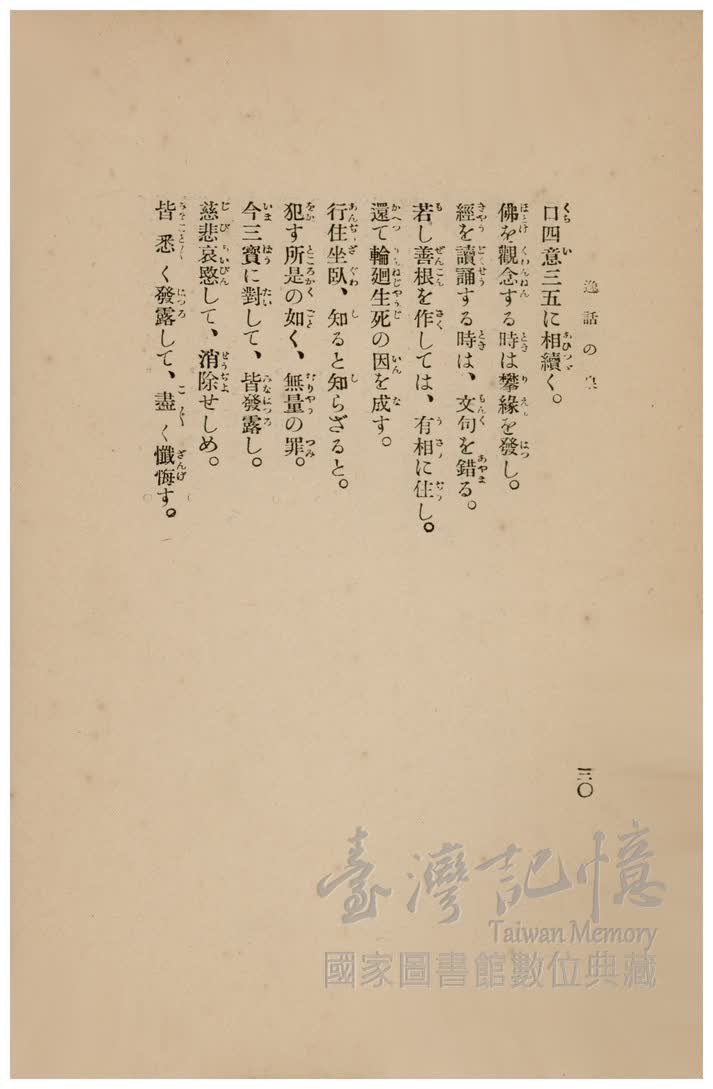 逸話の泉
三〇
口四意三五に相續く。
佛を觀念する時は攀緣を發し。
經を讀誦する時は、文句を錯る。
若し善根を作しては、有相に住し。
還て輪廻生死の因を成す。
行住坐臥、知ると知らざると。
犯す所是の如く、無量の罪。
今三寶に對して、皆發露し。
慈悲哀愍して、消除せしめ。
皆悉く發露して、盡く懺悔す。
臺灣記憶
Taiwan Memory
國家圖書館數位典藏